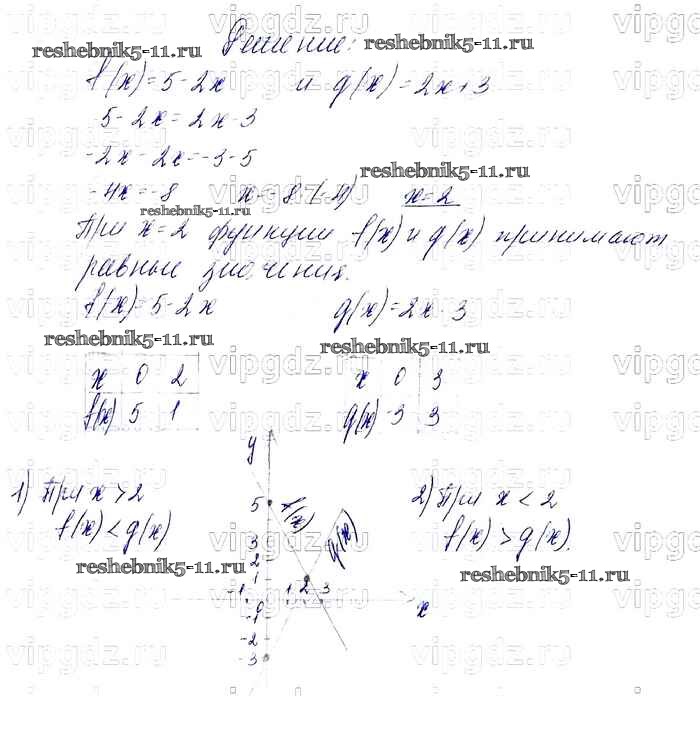 Решение:
f(x)=5-2x и g(x)=2x+3
5-2x=2x-3
-2x-2x=-3-5
-4x=-8 x=-8:(-4) x=2
При x=2 функции f(x) и g(x) принимают
равные значения.
f(x)=5-2x g(x)=2x-3
x 0 2 x 0 3
f(x) 5 1 g(x) -3 3
1) При x>2
f(x)<g(x)
2) При x<2
f(x)>g(x).
y
5
f(x)
g(x)
3
2
1
-1 0 1 2 3 x
-1
-2
-3
reshebnik5-11.ru
reshebnik5-11.ru
reshebnik5-11.ru
reshebnik5-11.ru
reshebnik5-11.ru
reshebnik5-11.ru
reshebnik5-11.ru
reshebnik5-11.ru
vipgdz.ru